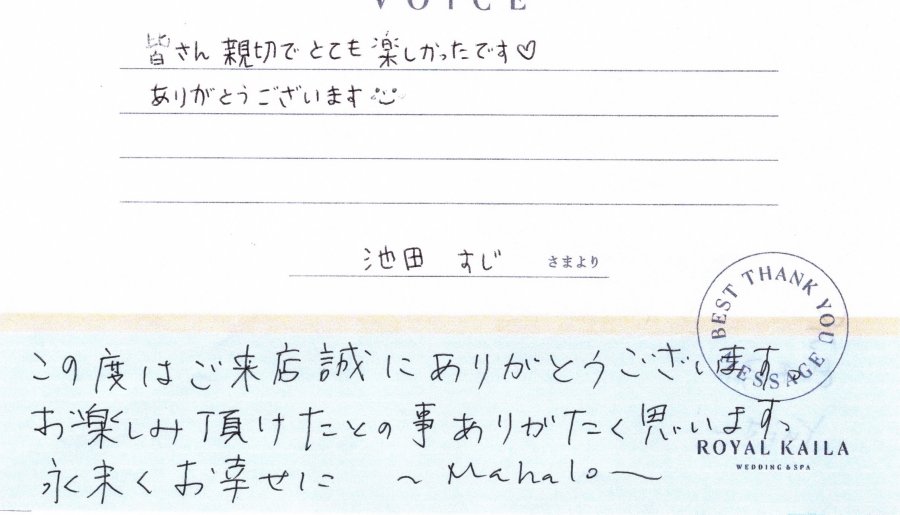 VOICE
皆さん 親切で とても 楽しかったです♡
ありがとうございます
池田 すじ さまより
BEST THANK YOU MESSAGE
この度はご来店誠にありがとうございます。
お楽しみ頂けたとの事ありがたく思います。
永末くお幸せに ～Mahalo～
ROYAL KAILA
WEDDING & SPA